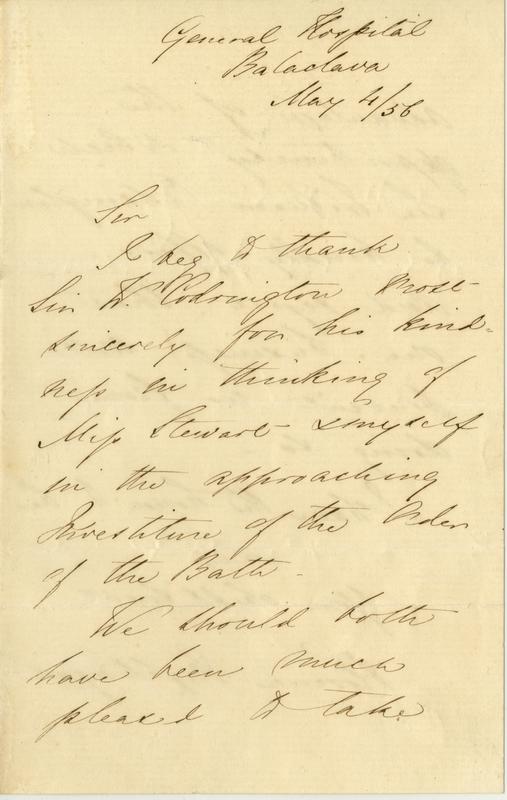 General Hospital
Balaclava
May 4/56
Sir
I beg to thank
Sir W. Codrington most
sincerely for his kind=
ness in thinking of
Miss Stewart & myself
in the approaching
Investiture of the Order
of the Bath.
We should both
have been much
pleased to take